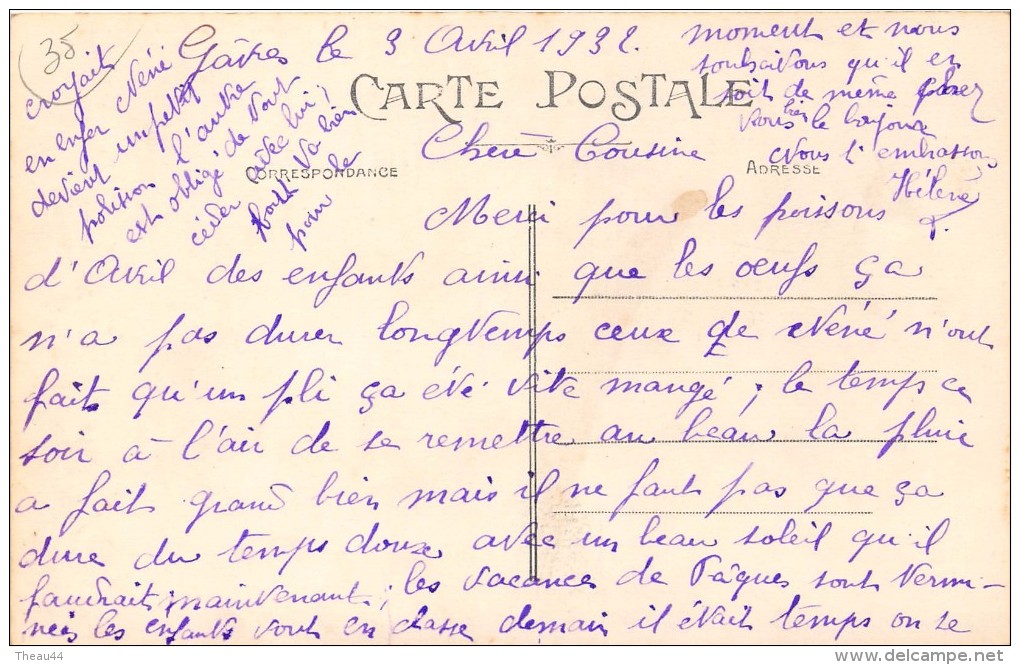 35
Gâvres le 3 Avril 1932.
CARTE POSTALE
CORRESPONDANCE
ADRESSE
Chère Cousine
Merci pour les poissons
d'Avril des enfants ainsi que les oeufs ça
n'a pas durer longtemps ceux de Néné n'ont
fait qu'un pli ça été vite mangé; le temps ce
soir à l'air de se remettre au beau la pluie
a fait grand bien mais il ne faut pas que ça
dure du temps doux avec un beau soleil qu'il
faudrait maintenant; les vacances de Pâques sont termi-
nées les enfants vont en classe demain il était temps on se
croyait
en enfer Néné
devient un petit
polisson l'autre
est obligé de tout
céder avec lui,
tout va bien
pour le
moment et nous
souhaitons qu'il en
soit de même chez
vous bien le bonjour
Nous t'embrassons
Hélène
©Theau44
Delcampe.net